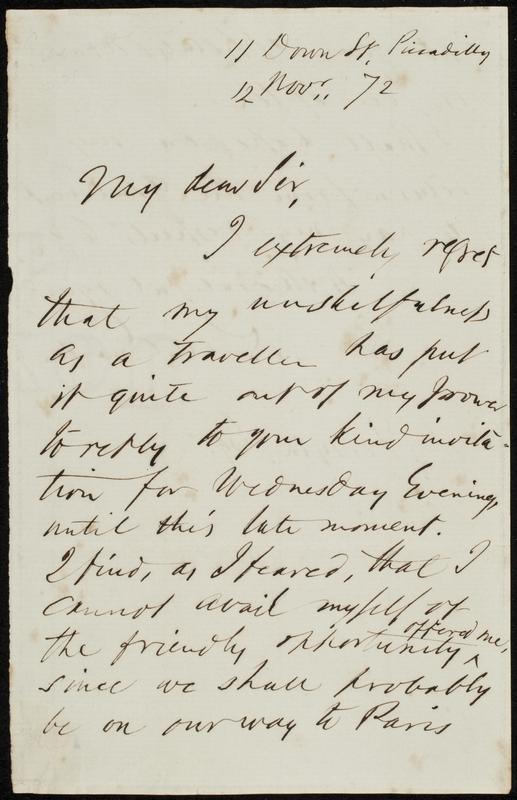 11 Down St. Piccadilly
12 Novr. 72
My dear Sir,
I extremely regret
that my unskilfulness
as a traveller has put
it quite out of my power
to reply to your kind invita-
tion for Wednesday Evening,
until this late moment.
I find, as I feared, that I
cannot avail myself of
the friendly opportunity ^ offered me,
since we shall probably
be on our way to Paris